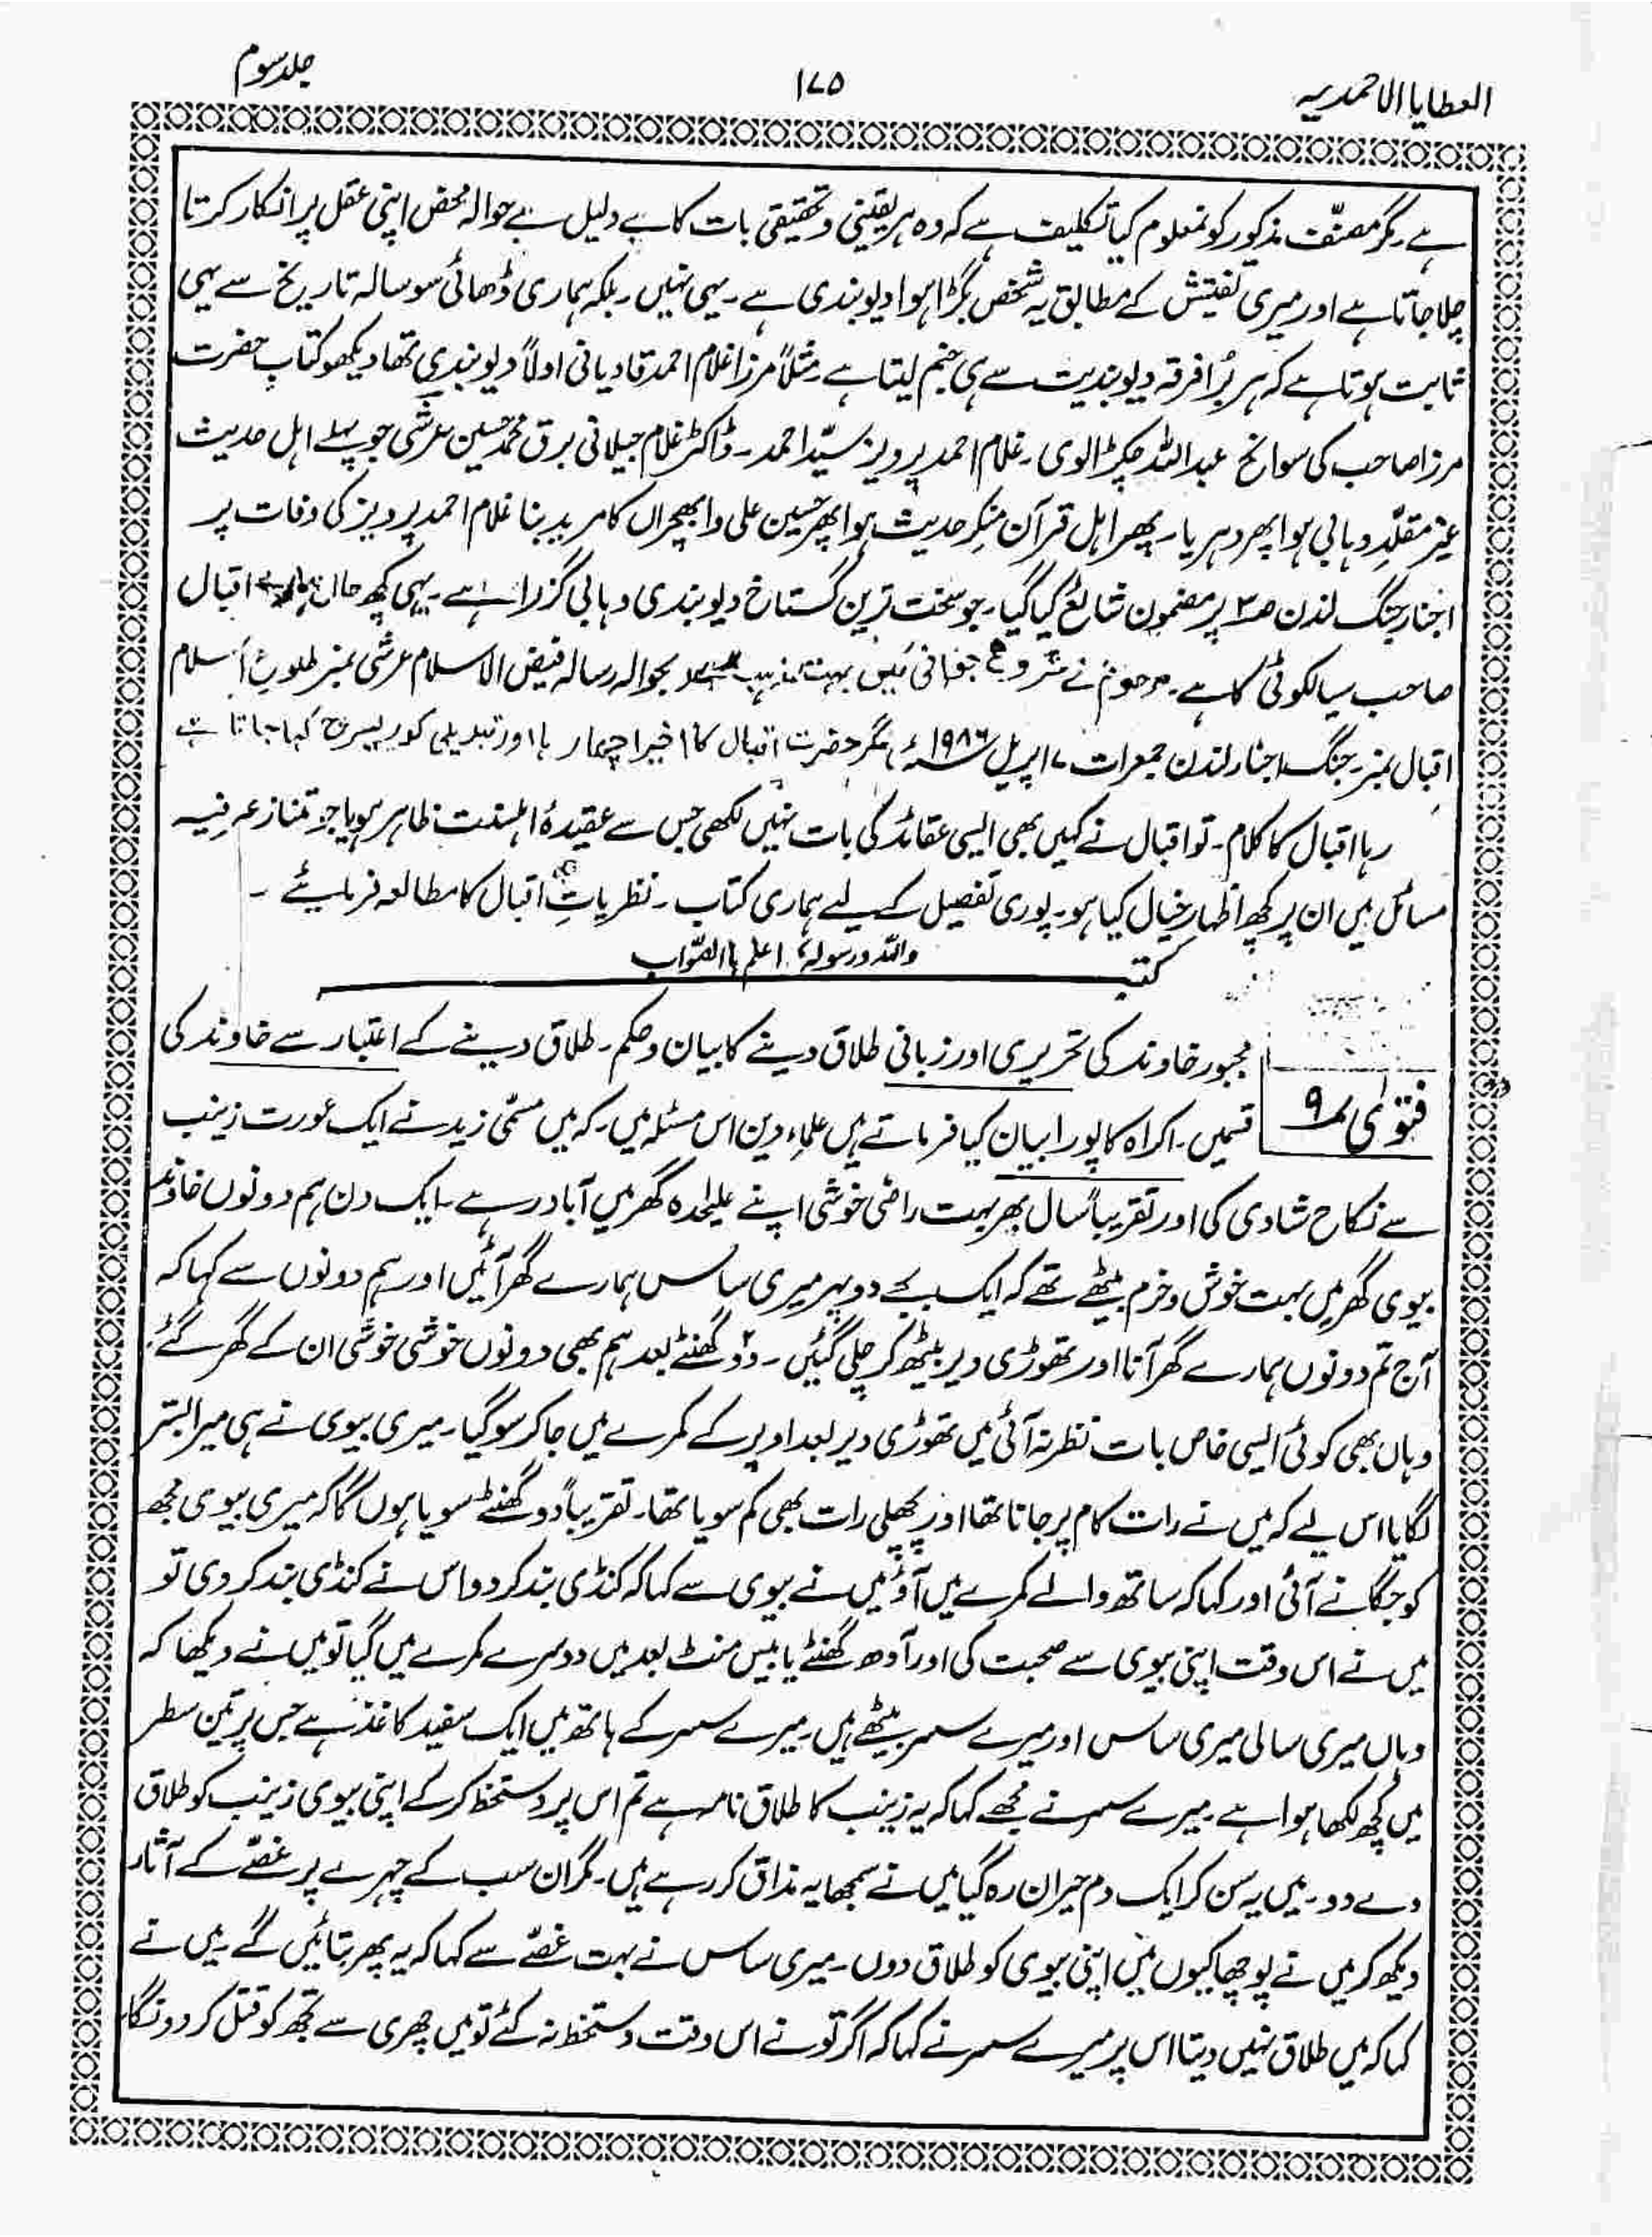 العطایا الاحمدیہ
۱۷۵
جلد سوم
ہے۔ مگر مصنّف مذکور کو نمعلوم کیا تکلیف ہے کہ وہ ہر یقینی و تحقیقی بات کا بے دلیل بے حوالہ محض اپنی عقل پر انکار کرتا
چلا جاتا ہے اور میری تفتیش کے مطابق یہ شخص بگڑا ہوا دیوبندی ہے۔ یہی نہیں۔ بلکہ ہماری ڈھائی سو سالہ تاریخ سے یہی
ثابت ہوتا ہے کہ ہر بُرا فرقہ دیوبندیت سے ہی جنم لیتا ہے۔ مثلاً مرزا غلام احمد قادیانی اولاً دیوبندی تھا دیکھو کتاب حضرت
مرزا صاحب کی سوانح عبداللہ چکڑالوی۔ غلام احمد پرویز سیّد احمد۔ ڈاکٹر غلام جیلانی برق محمد حسین عرشی جو پہلے اہل حدیث
غیر مقلّد وہابی ہوا پھر دہریا۔ پھر اہل قرآن منکرِ حدیث ہوا پھر حسین علی وابھچراں کا مرید بنا غلام احمد پرویز کی وفات پر
اخبار جنگ لندن ص۳ پر مضمون شائع کیا گیا۔ جو سخت ترین گستاخ دیوبندی وہابی گزرا ہے۔ یہی کچھ حال اقبال
صاحب سیالکوٹی کا ہے۔ مرحوم نے شروع جوانی میں بہت مذہب بحوالہ رسالہ فیض الاسلام عرشی نمبر طلوع اسلام
اقبال نمبر۔ جنگ اخبار لندن جمعرات ۱۷ اپریل ۱۹۸۶ء مگر حضرت اقبال کا اخیر اچھا رہا اور تبدیلی کو ریسرچ کہا جاتا ہے
رہا اقبال کا کلام۔ تو اقبال نے کہیں بھی ایسی عقائد کی بات نہیں لکھی جس سے عقیدۂ اہلسنت ظاہر ہو یا جو متنازعہ فیہ
مسائل ہیں ان پر کچھ اظہارِ خیال کیا ہو۔ پوری تفصیل کے لیے ہماری کتاب۔ نظریاتِ اقبال کا مطالعہ فرمایئے ۔
کتبہ واللہ ورسولہٗ اعلم باالصّواب
فتوٰی ۹
مجبور خاوند کی تحریری اور زبانی طلاق دینے کا بیان و حکم۔ طلاق دینے کے اعتبار سے خاوند کی
قسمیں۔ اکراہ کا پورا بیان کیا فرماتے ہیں علماءِ دین اس مسئلہ میں۔ کہ میں مسمّٰی زید نے ایک عورت زینب
سے نکاح شادی کی اور تقریباً سال بھر بہت راضی خوشی اپنے علیحدہ گھر میں آباد رہے۔ ایک دن ہم دونوں خاوند
بیوی گھر میں بہت خوش و خرم بیٹھے تھے کہ ایک بجے دوپہر میری ساس ہمارے گھر آئیں اور ہم دونوں سے کہا کہ
آج تم دونوں ہمارے گھر آنا اور تھوڑی دیر بیٹھ کر چلی گئیں۔ دو گھنٹے بعد ہم بھی دونوں خوشی خوشی ان کے گھر گئے۔
وہاں بھی کوئی ایسی خاص بات نظر نہ آئی میں تھوڑی دیر بعد اوپر کے کمرے میں جا کر سو گیا۔ میری بیوی نے ہی میرا بستر
لگایا اس لیے کہ میں نے رات کام پر جانا تھا اور پچھلی رات بھی کم سویا تھا۔ تقریباً دو گھنٹے سویا ہوں گا کہ میری بیوی مجھ
کو جگانے آئی اور کہا کہ ساتھ والے کمرے میں آؤ میں نے بیوی سے کہا کہ کنڈی بند کر دو اس نے کنڈی بند کر دی تو
میں نے اس وقت اپنی بیوی سے صحبت کی اور آدھ گھنٹے یا بیس منٹ بعد میں دوسرے کمرے میں گیا تو میں نے دیکھا کہ
وہاں میری سالی میری ساس اور میرے سسر بیٹھے ہیں۔ میرے سسر کے ہاتھ میں ایک سفید کاغذ ہے جس پر تین سطر
میں کچھ لکھا ہوا ہے۔ میرے سسر نے مجھے کہا کہ یہ زینب کا طلاق نامہ ہے تم اس پر دستخط کر کے اپنی بیوی زینب کو طلاق
دے دو۔ میں یہ سن کر ایک دم حیران رہ گیا میں نے سمجھا یہ مذاق کر رہے ہیں۔ مگر ان سب کے چہرے پر غصّے کے آثار
دیکھ کر میں نے پوچھا کیوں میں اپنی بیوی کو طلاق دوں۔ میری ساس نے بہت غصّے سے کہا کہ یہ پھر بتائیں گے۔ میں نے
کہا کہ میں طلاق نہیں دیتا اس پر میرے سسر نے کہا کہ اگر تو نے اس وقت دستخط نہ کئے تو میں چھری سے تجھ کو قتل کر دونگا۔